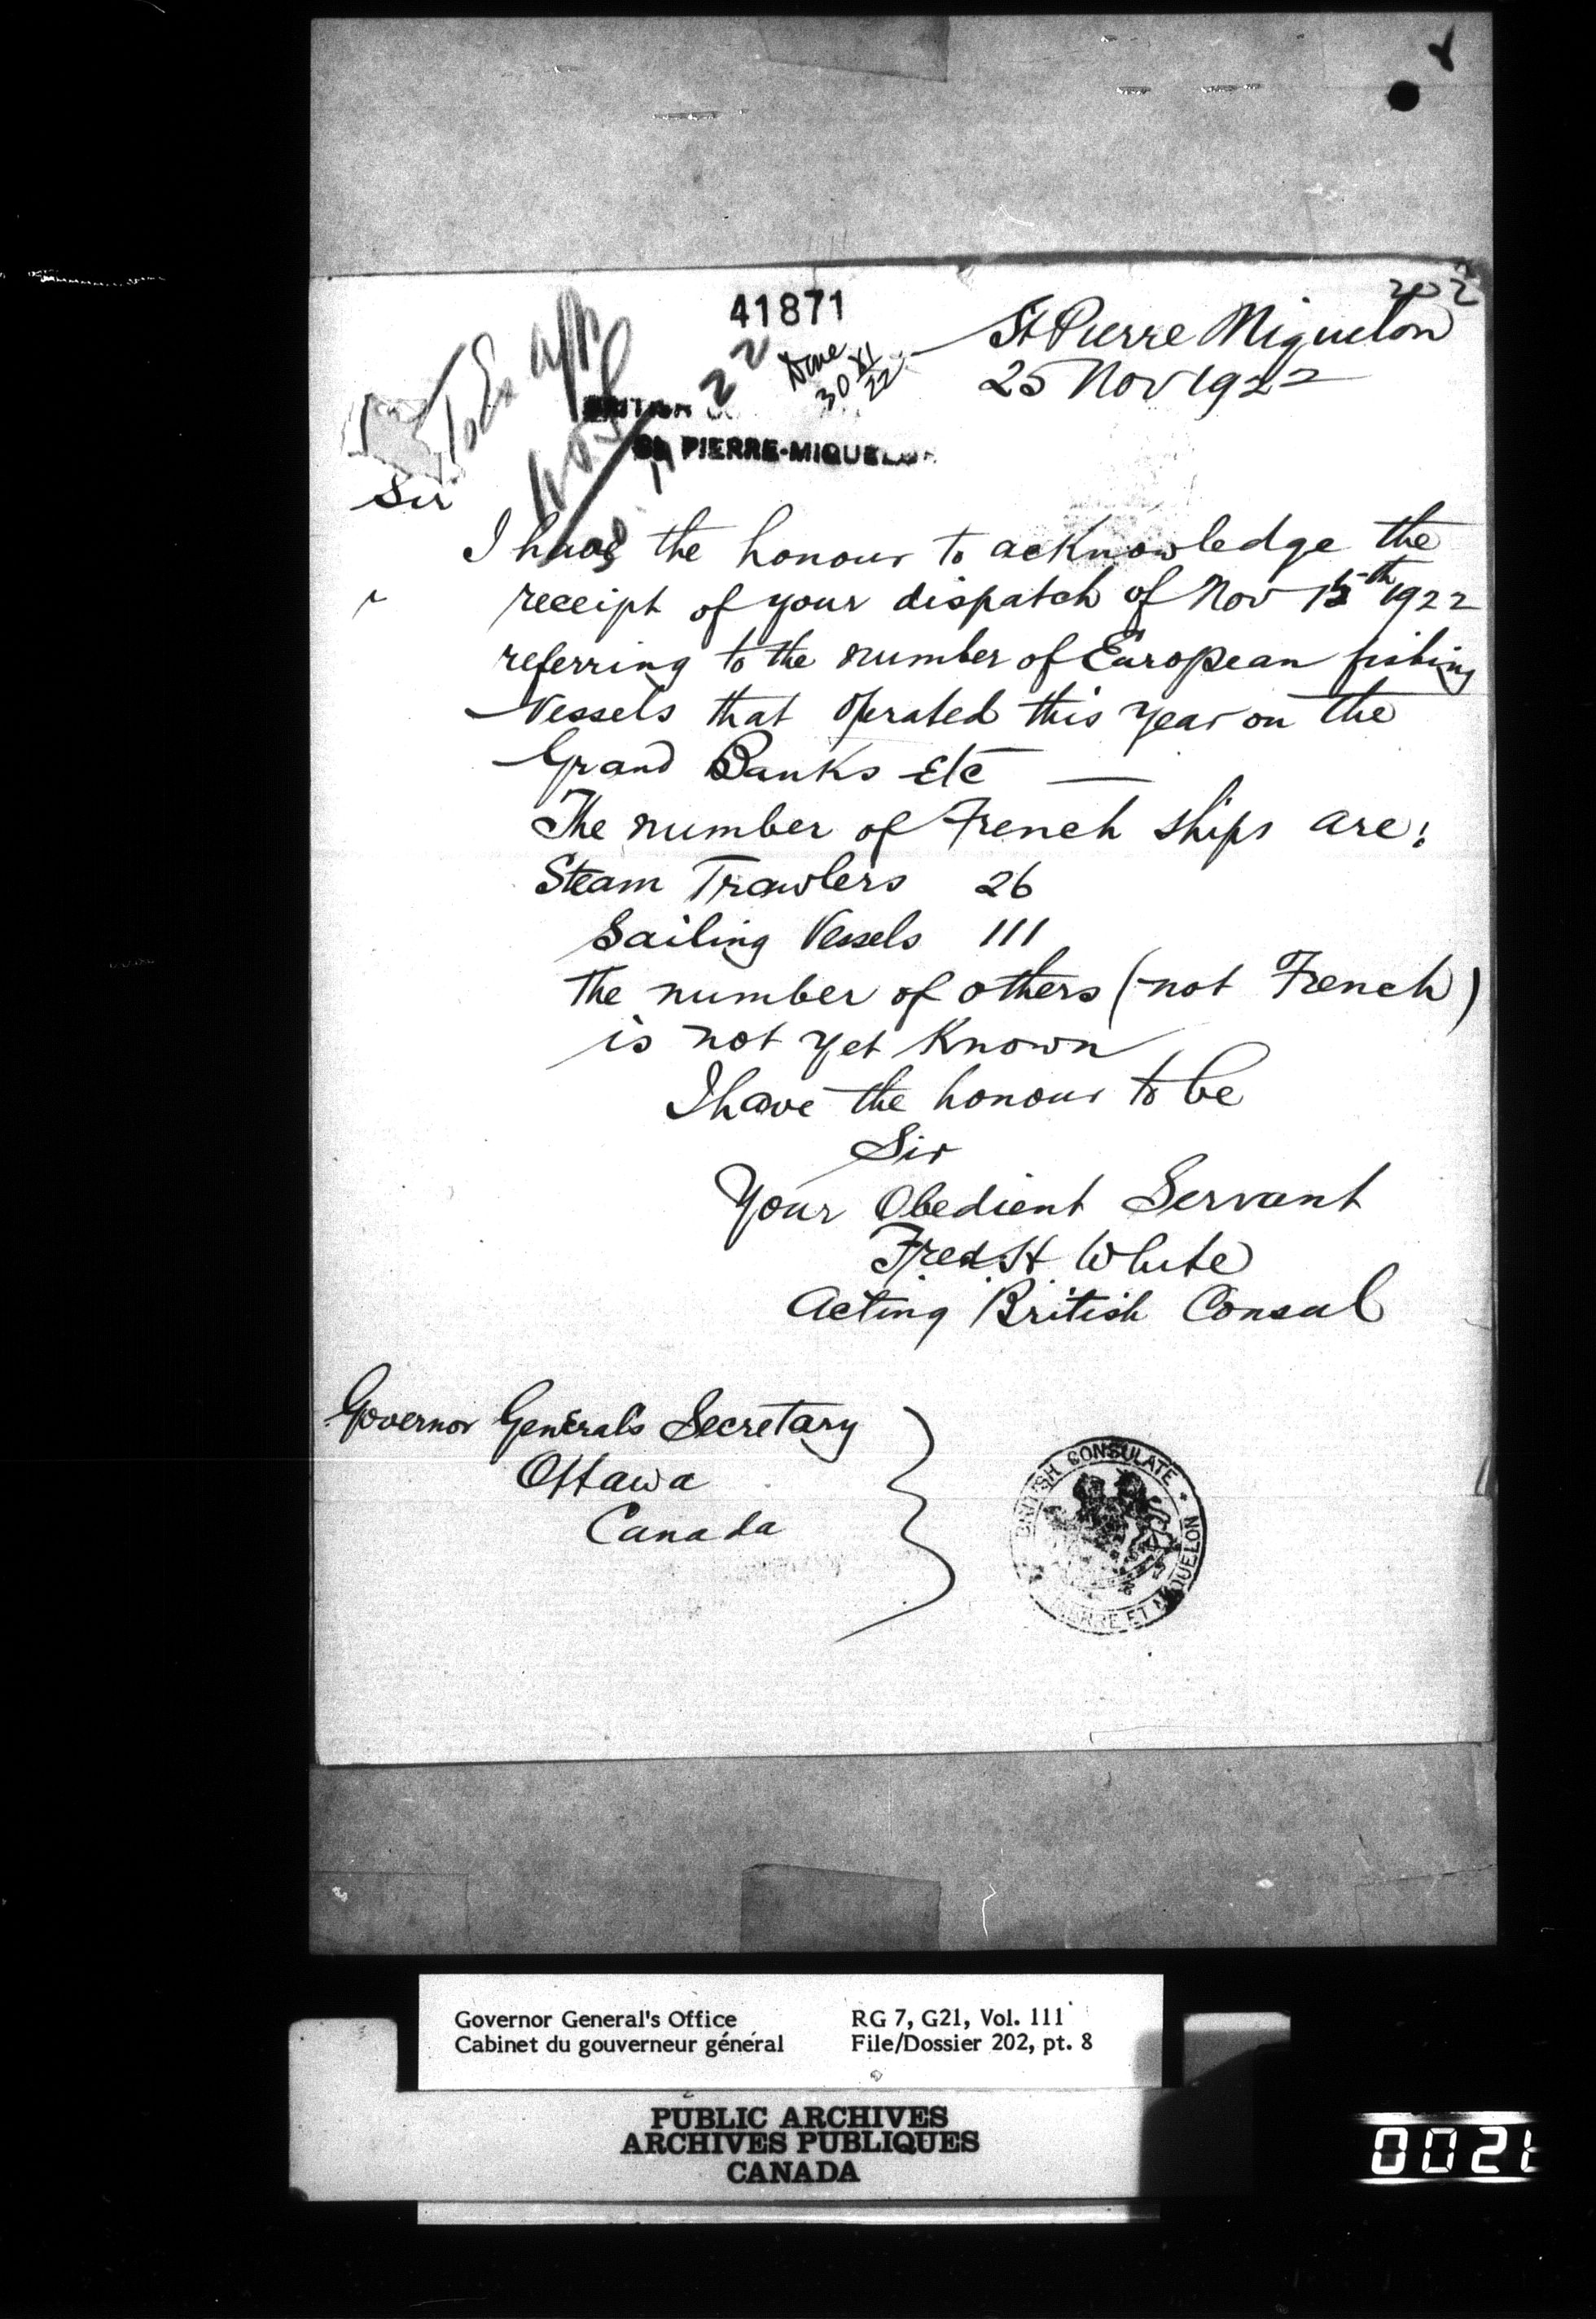 202
41871
St Pierre Miquelon
25 Nov 1922
Done
30 XI
22
To Ex. Aff.
22
BRITISH
St. PIERRE-MIQUELON
Sir
I have the honour to acknowledge the
receipt of your dispatch of Nov 15th 1922
referring to the number of European fishing
Vessels that operated this year on the
Grand Banks Etc —
The number of French ships are:
Steam Trawlers 26
Sailing Vessels 111
The number of others (not French)
is not yet Known
I have the honour to be
Sir
Your Obedient Servant
Fred H White
Acting British Consul
Governor General's Secretary
Ottawa
Canada
BRITISH CONSULATE
PIERRE ET MIQUELON
Governor General's Office RG 7, G21, Vol. 111
Cabinet du gouverneur général File/Dossier 202, pt. 8
PUBLIC ARCHIVES
ARCHIVES PUBLIQUES
CANADA
0021